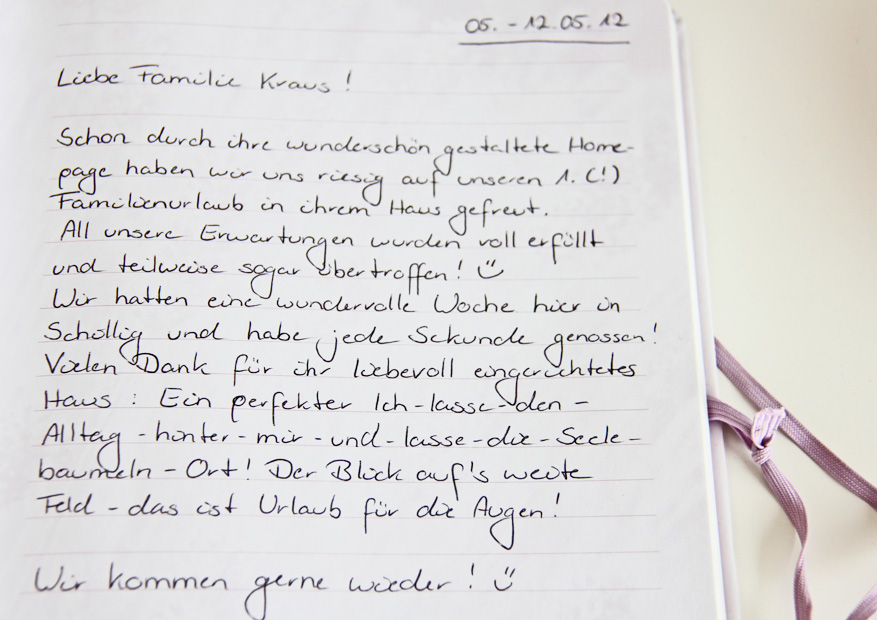 05. - 12.05.12
Liebe Familie Kraus!
Schon durch ihre wunderschön gestaltete Home-
page haben wir uns riesig auf unseren 1. (!)
Familienurlaub in ihrem Haus gefreut.
All unsere Erwartungen wurden voll erfüllt
und teilweise sogar übertroffen! ☺
Wir hatten eine wundervolle Woche hier in
Schillig und habe jede Sekunde genossen!
Vielen Dank für ihr liebevoll eingerichtetes
Haus: Ein perfekter Ich-lasse-den-
Alltag-hinter-mir-und-lasse-die-Seele-
baumeln-Ort! Der Blick auf's weite
Feld - das ist Urlaub für die Augen!
Wir kommen gerne wieder! ☺